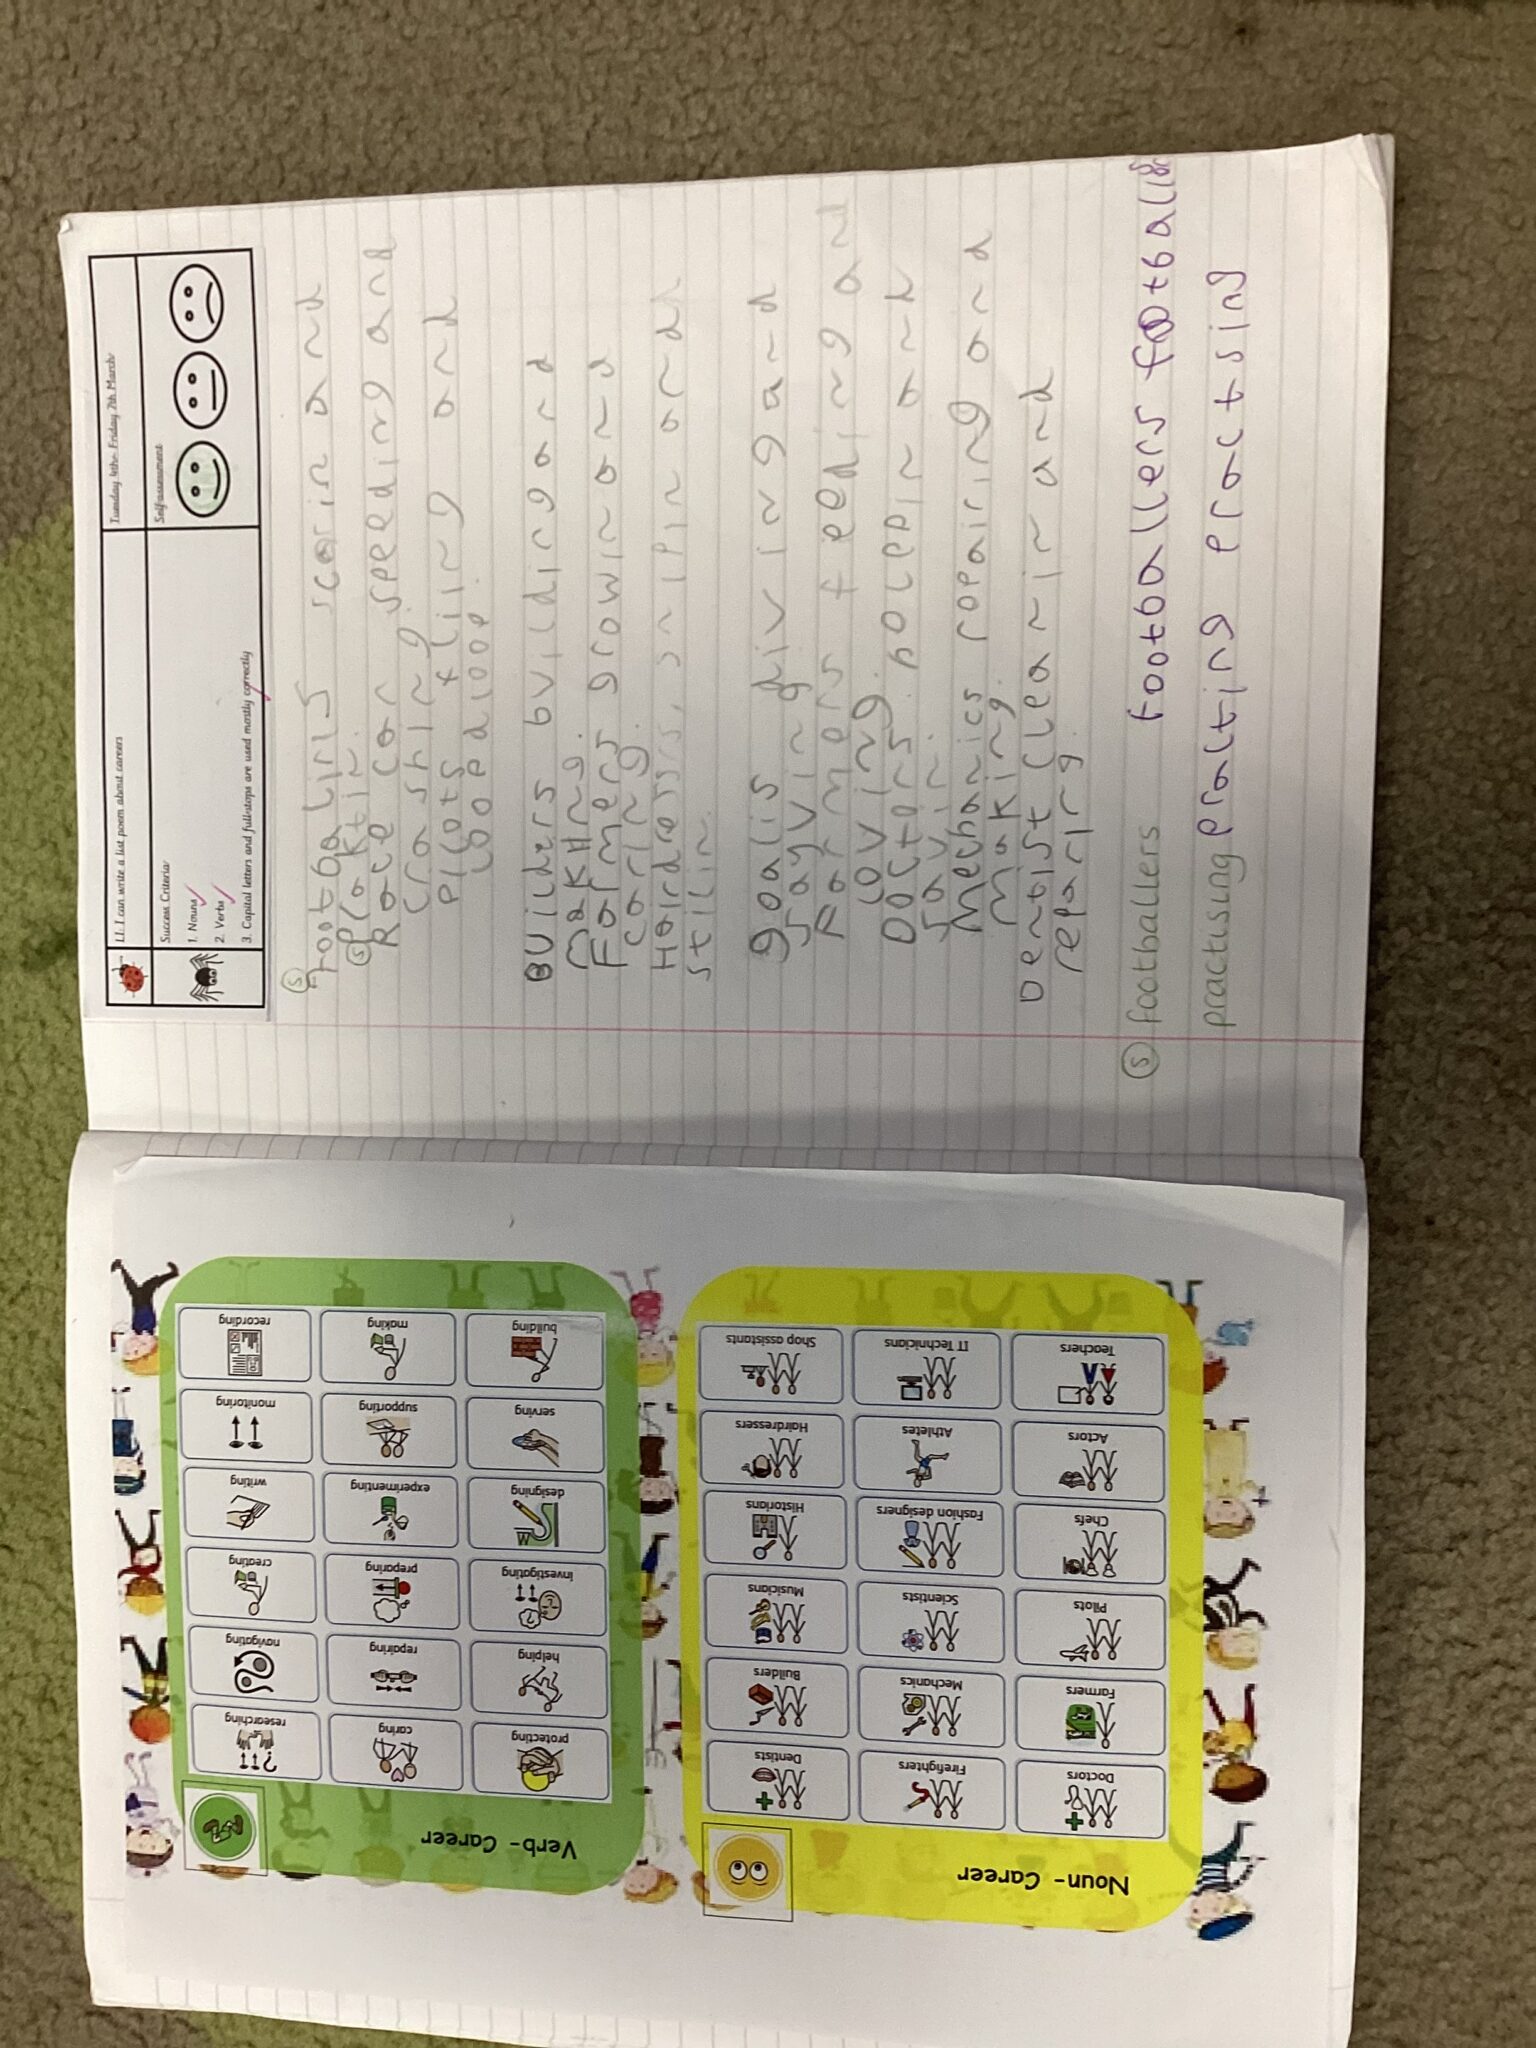 LI. I can write a list poem about careers
Tuesday 4th- Friday 7th March
Success Criteria:
Self-assessment
1. Nouns
2. Verbs
3. Capital letters and full-stops are used mostly correctly
S
Footbalirs scorin and
S
Praktin.
Race car speeding and
Crashing.
Pilots fliing and
loopdioop.
BUilders bvilding and
makking.
Farmers growin and
caring.
Hairdressrs snipin and
stilin.
goalis diving and
sayving
Farmers feeding and
loving.
Doctors holepin and
savin.
Mechanics repairing and
making.
Dentist clearin and
repairg.
S footballers footballers footballers
practising practing practsing
Verb - Career
protecting
caring
researching
helping
repairing
navigating
investigating
preparing
creating
designing
experimenting
writing
serving
supporting
monitoring
building
making
recording
Noun - Career
Doctors
Firefighters
Dentists
Farmers
Mechanics
Builders
Pilots
Scientists
Musicians
Chefs
Fashion designers
Historians
Actors
Athletes
Hairdressers
Teachers
IT Technicians
Shop assistants